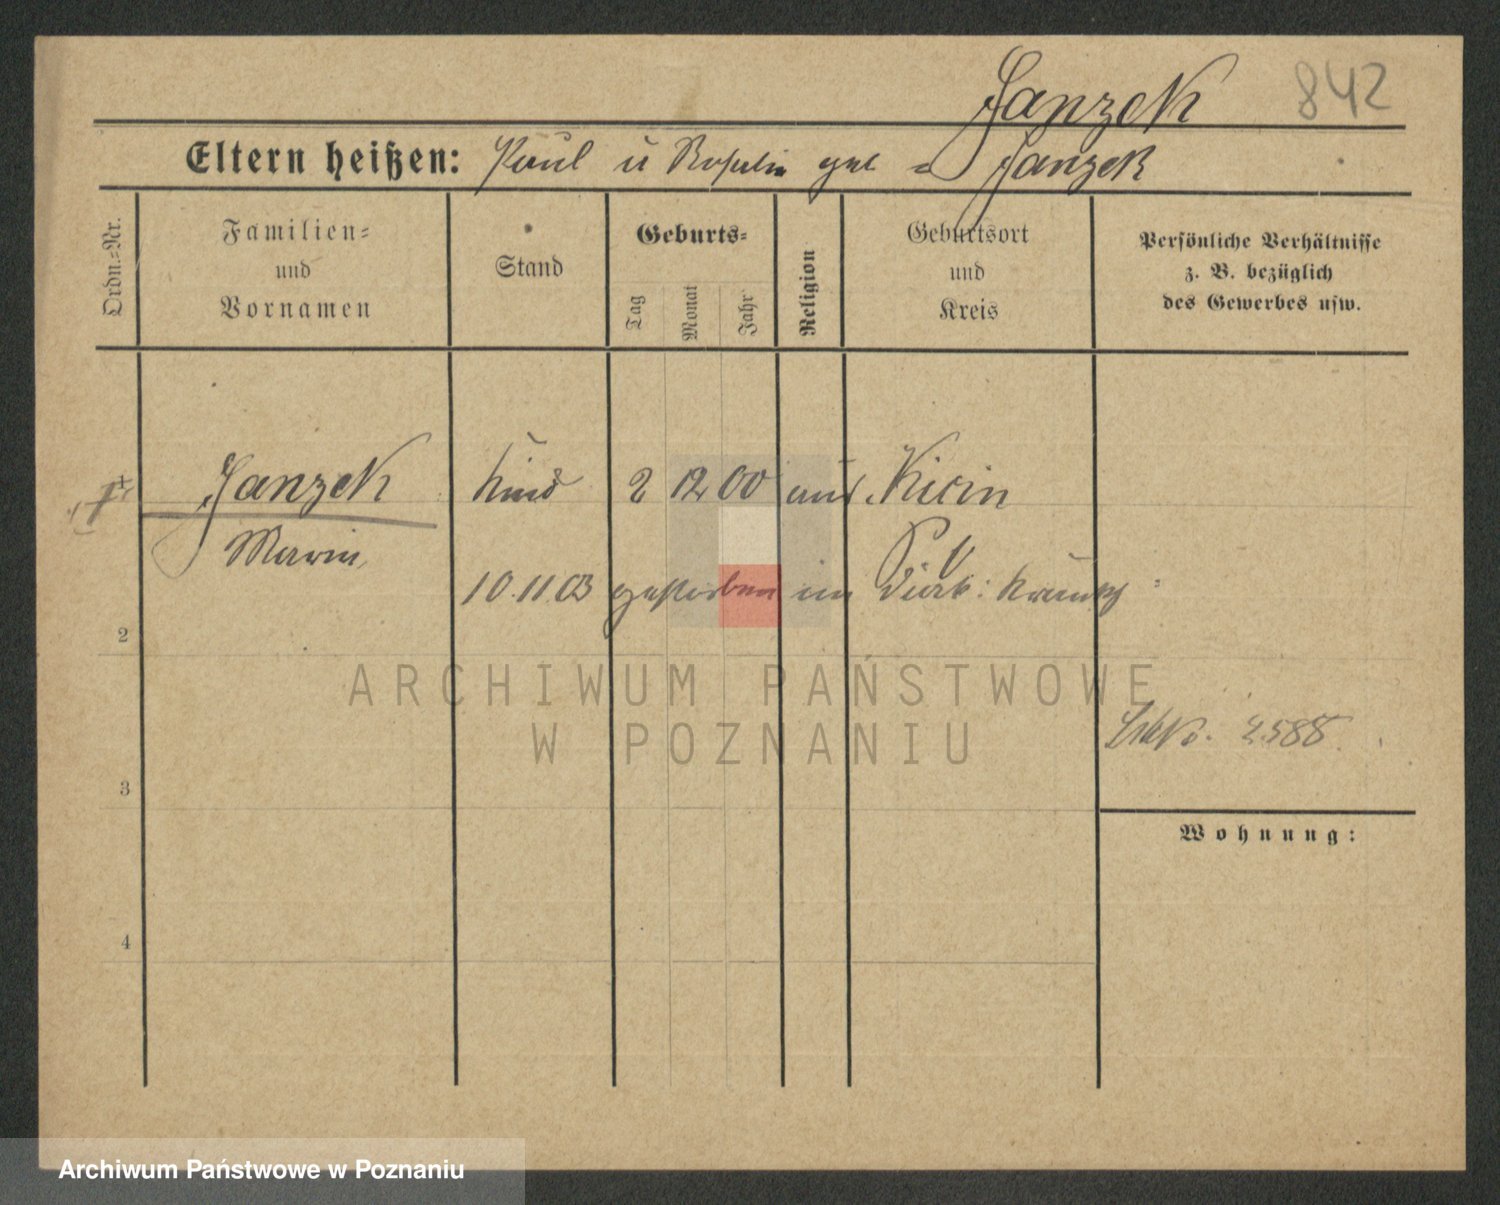 Janzek 842
Eltern heißen: Paul u Rosalie geb = Janzek
Ordn.-Nr.
Familien-
und
Vornamen
Stand
Geburts-
Tag
Monat
Jahr
Religion
Geburtsort
und
Kreis
Persönliche Verhältnisse
z. B. bezüglich
des Gewerbes usw.
1 Janzek Kind 2 12 00 Kicin
Maria
10.11.03 gestorben im
2
ARCHIWUM PAŃSTWOWE
W POZNANIU
2588
3
Wohnung:
4
Archiwum Państwowe w Poznaniu